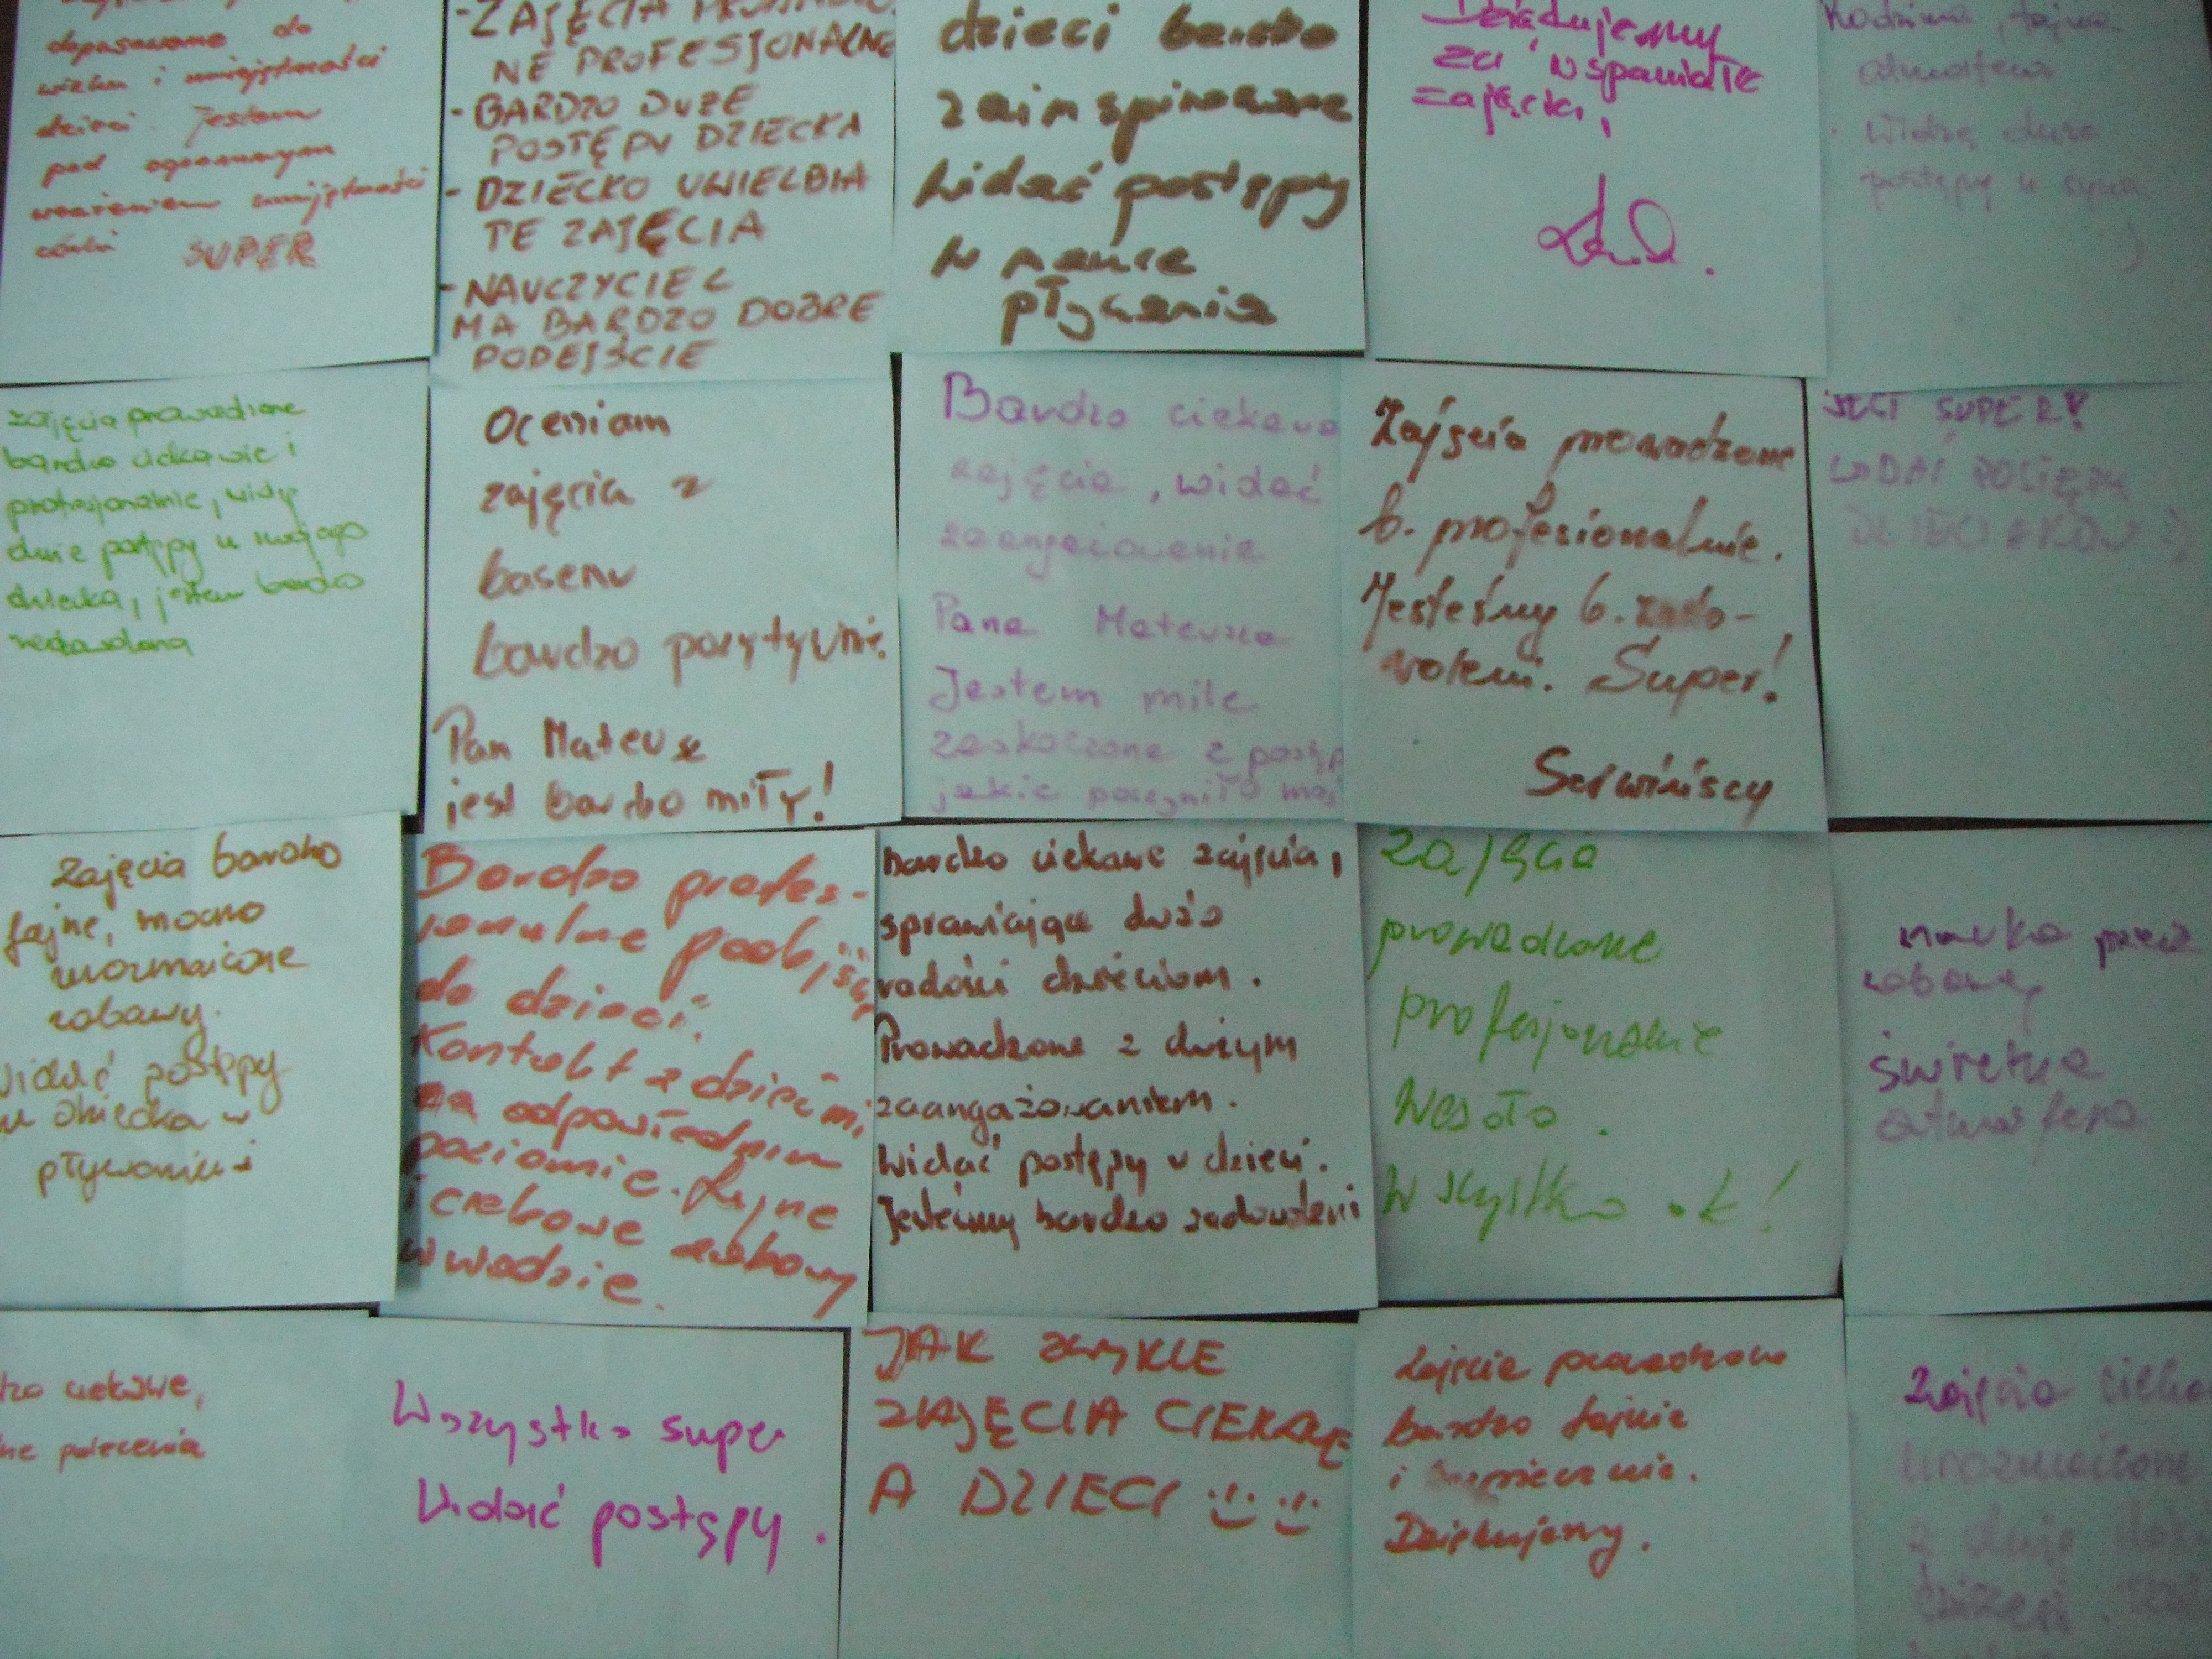 dopasowane do
wieku i umiejętności
dzieci. Jestem
pod ogromnym
wrażeniem umiejętności
córki SUPER
- ZAJĘCIA
NE PROFESJONALNE
- BARDZO DUŻE
POSTĘPY DZIECKA
- DZIECKO UWIELBIA
TE ZAJĘCIA
- NAUCZYCIEL
MA BARDZO DOBRE
PODEJŚCIE
dzieci bardzo
zainspirowane
Widać postępy
w nauce
pływania
Dziękujemy
za wspaniałe
zajęcia,
Rodzinna, fajna
atmosfera
. Widzę duże
postępy u syna
:)
zajęcia prowadzone
bardzo ciekawie i
profesjonalnie, widzę
duże postępy u mojego
dziecka, jestem bardzo
zadowolona
Oceniam
zajęcia z
basenu
bardzo pozytywnie.
Pan Mateusz
jest bardzo miły!
Bardzo ciekawe
zajęcia, widać
zaangażowanie
Pana Mateusza
Jestem mile
zaskoczona z postęp
jakie poczyniło moj
Zajęcia prowadzone
b. profesionalnie.
Jesteśmy b. zado-
woleni. Super!
Serwińscy
JEST SUPER!
WIDAĆ POSTĘPY
DZIECIAKÓW :)
Zajęcia bardzo
fajne, mocno
urozmaicone
zabawy.
Widać postępy
u dziecka w
pływaniu
Bardzo profes-
jonalne podejście
do dzieci.
Kontakt z dziećmi
na odpowiednim
poziomie. Fajne
i ciekawe zabawy
w wodzie.
Bardzo ciekawe zajęcia,
sprawiające dużo
radości dzieciom.
Prowadzone z dużym
zaangażowaniem.
Widać postępy u dzieci.
Jesteśmy bardzo zadowoleni
Zajęcia
prowadzone
profesjonalnie
Wesoło.
Wszystko ok!
nauka przez
zabawę,
świetna
atmosfera
dzo ciekawe,
ne polecenia
Wszystko super
Widać postępy.
JAK ZWYKLE
ZAJĘCIA CIEKAWE
A DZIECI :) :)
Zajęcia prowadzone
bardzo fajnie
i bezpiecznie.
Dziękujemy.
Zajęcia cieka
Urozmaicone
z dużą
ćwiczeń.